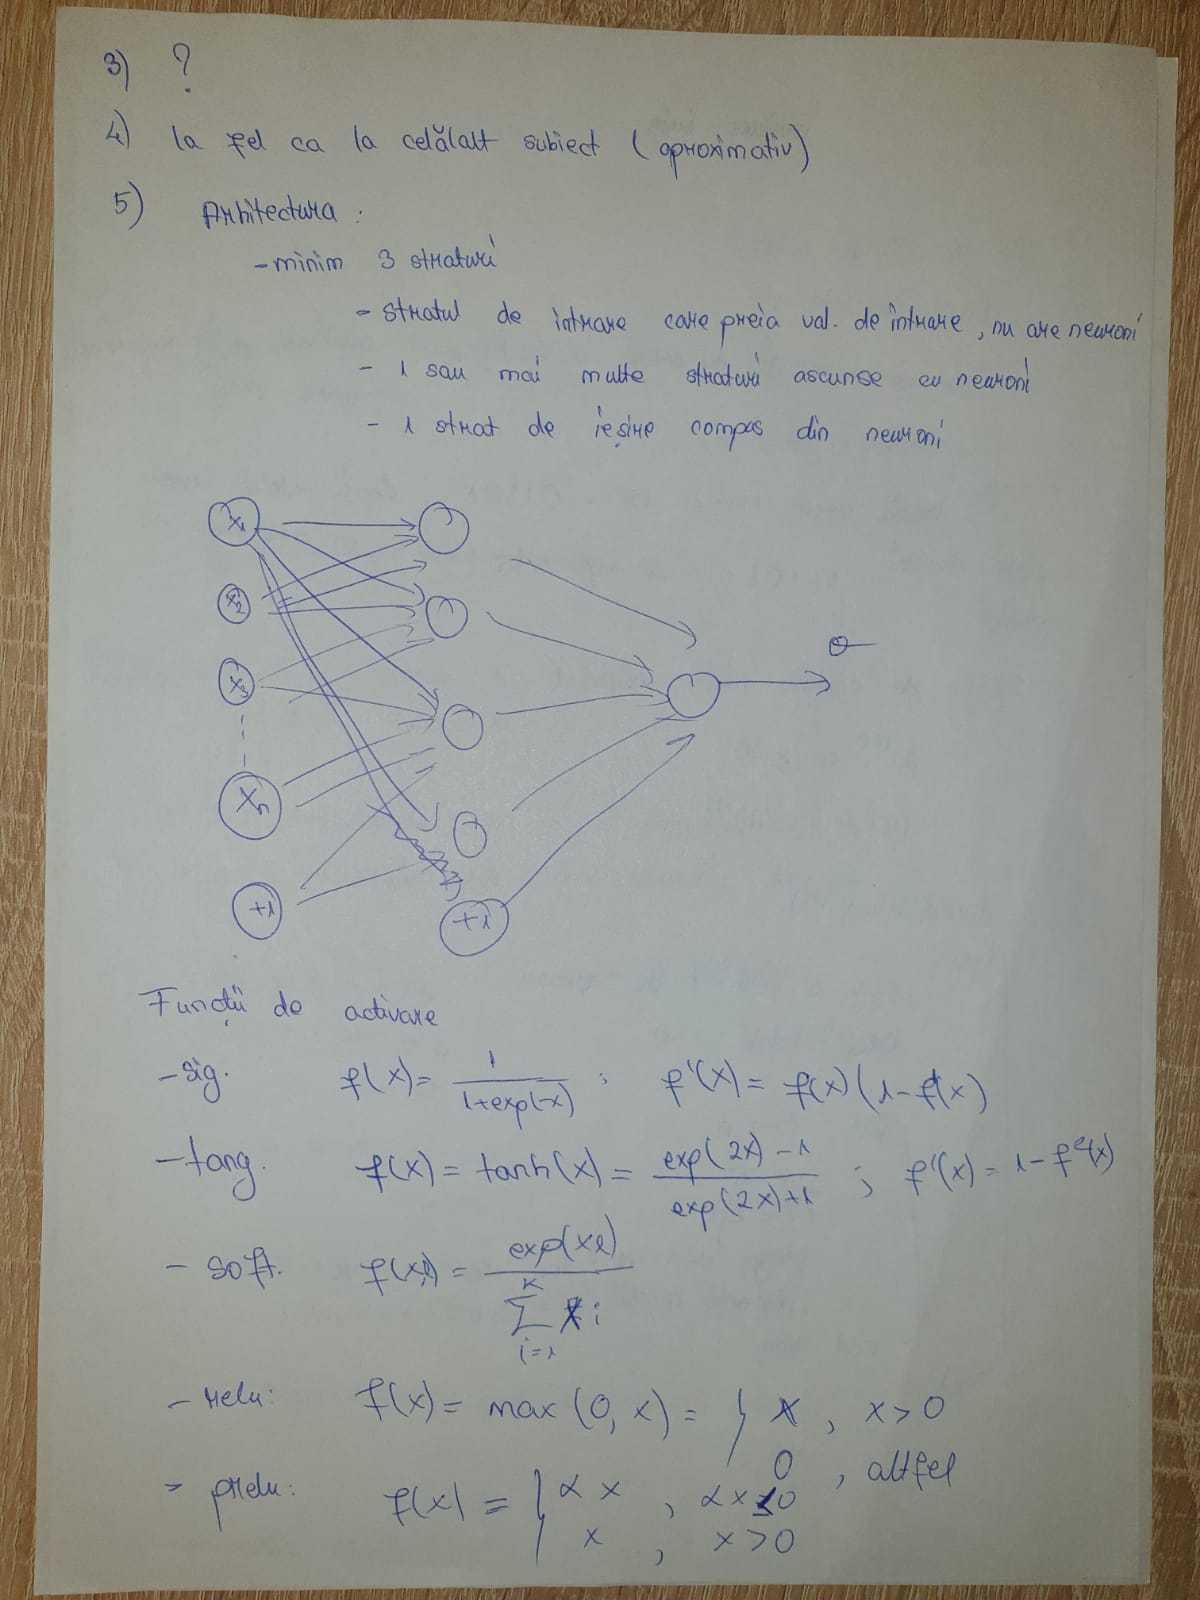 3) ?
4) la fel ca la celălalt subiect (aproximativ)
5) Arhitectura :
- minim 3 straturi
- stratul de intrare care preia val. de intrare, nu are neuroni
- 1 sau mai multe straturi ascunse cu neuroni
- 1 strat de ieșire compus din neuroni
x1
x2
x3
xn
+1
+1
Funcții de activare
- sig. f(x) = 1/(1+exp(-x)) ; f'(x) = f(x)(1-f(x)
- tang. f(x) = tanh(x) = (exp(2x)-1)/(exp(2x)+1) ; f'(x) = 1-f²(x)
- soft. exp(xl)
K
Σ
i=1
- relu: f(x) = max(0, x) = { x , x>0
0 , altfel
- prelu: f(x) = { αx , αx≤0
x , x>0